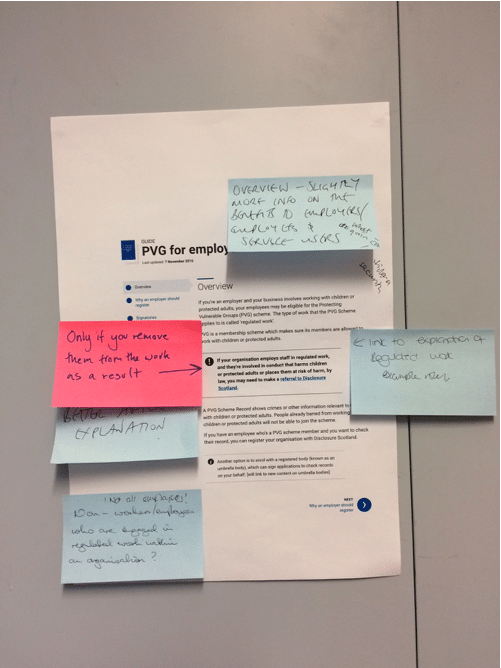 OVERVIEW - SLIGHTLY
MORE INFO ON THE
BENEFITS TO EMPLOYERS/
EMPLOYEES &
SERVICE USERS
GUIDE
PVG for employ
Last updated: 7 November 2019
Overview
Why an employer should
register
Signatories
Overview
If you're an employer and your business involves working with children or
protected adults, your employees may be eligible for the Protecting
Vulnerable Groups (PVG) scheme. The type of work that the PVG Scheme
applies to is called 'regulated work'.
PVG is a membership scheme which makes sure its members are allowed to
work with children or protected adults.
Only if you remove
them from the work
as a result →
If your organisation employs staff in regulated work,
and they're involved in conduct that harms children
or protected adults or places them at risk of harm, by
law, you may need to make a referral to Disclosure
Scotland.
← link to explanation of
Regulated work
example roles
EXPLANATION
A PVG Scheme Record shows crimes or other information relevant to
with children or protected adults. People already barred from working
children or protected adults will not be able to join the scheme.
If you have an employee who's a PVG scheme member and you want to check
their record, you can register your organisation with Disclosure Scotland.
Another option is to enrol with a registered body (known as an
umbrella body), which can sign applications to check records
on your behalf. [will link to new content on umbrella bodies]
'Not all employees'
Non-workers/employees
who are engaged in
regulated work within
an organisation?
NEXT
Why an employer should
register